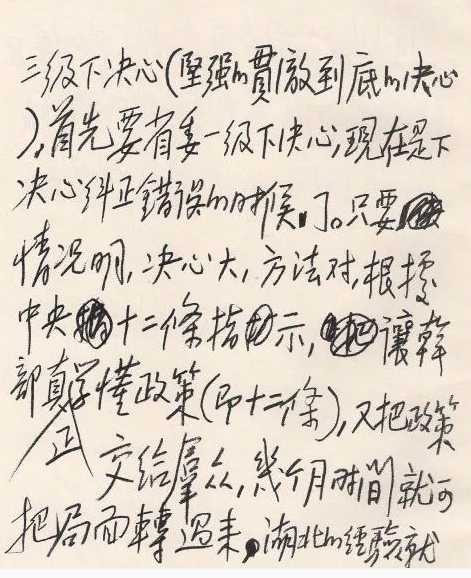 三级下决心(坚强的贯彻到底的决心
),首先要省委一级下决心,现在是下
决心纠正错误的时候了。只要
情况明,决心大,方法对,根据
中央十二条指示,让干
部真正学懂政策(即十二条),又把政策
交给群众,几个月时间就可
把局面转过来,湖北的经验就